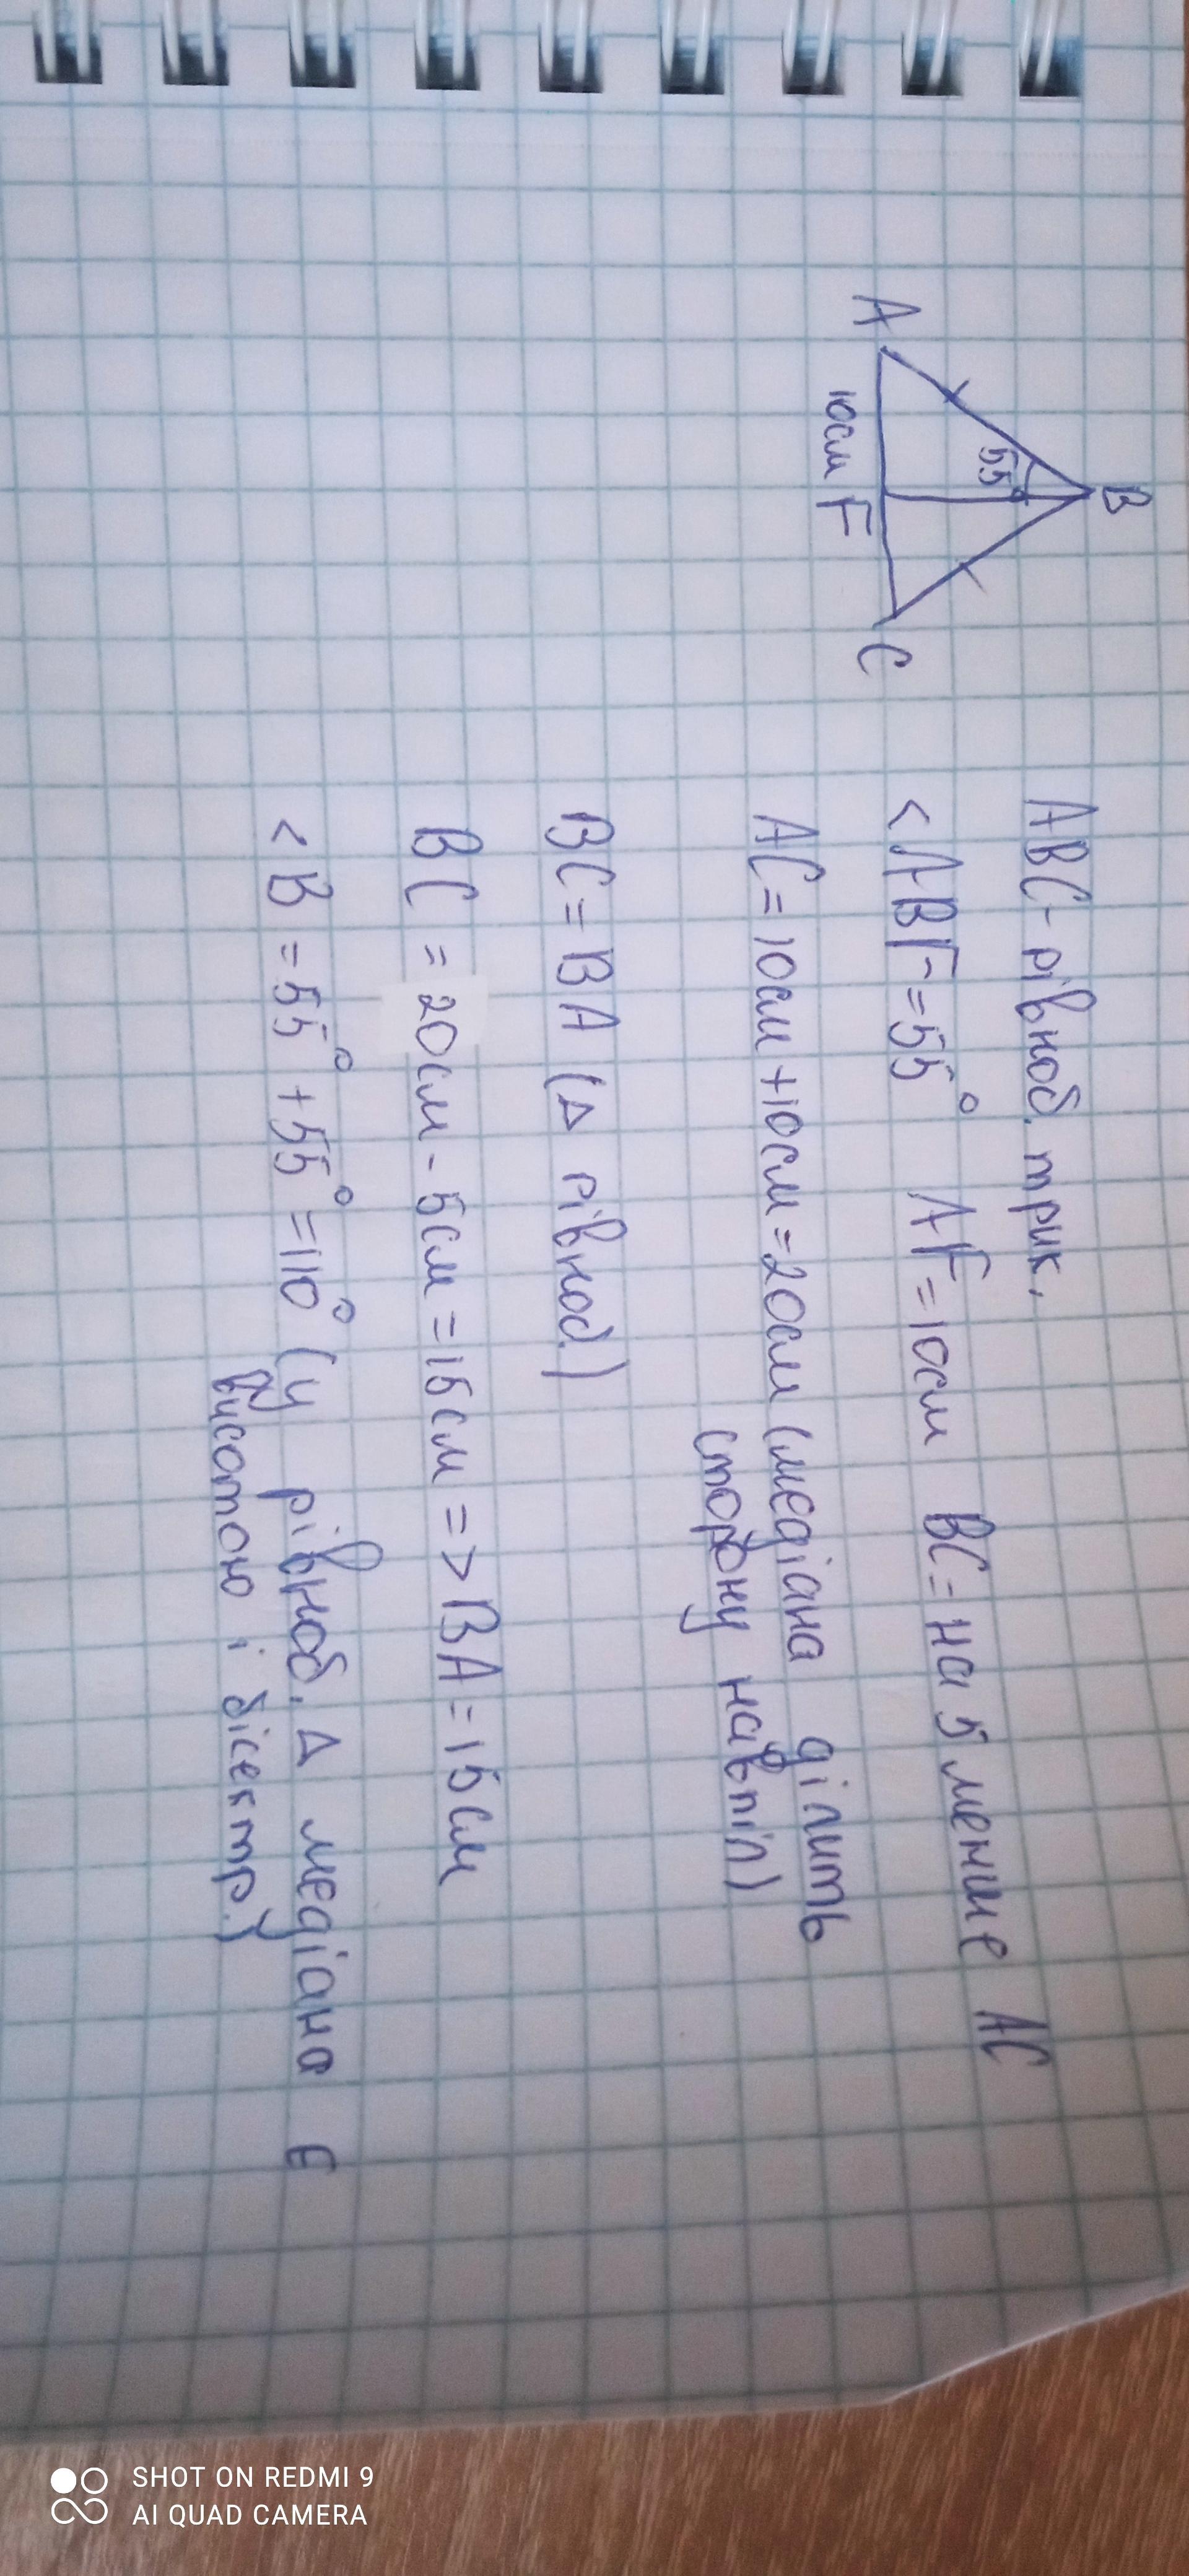 B
55°
A
10см F
C
ABC - рівноб. трик.
<ABF=55° AF=10см BC= на 5 менше AC
AC=10см+10см=20см (медіана ділить
сторону навпіл)
BC=BA (Δ рівноб.)
BC = 20см-5см=15см => BA=15см
<B =55°+55°=110° (у рівноб. Δ медіана є
висотою і бісектр.)
SHOT ON REDMI 9
AI QUAD CAMERA